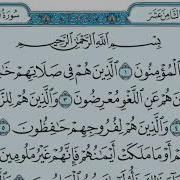 سُورَةُ
الثَّامِنَ عَشَرَ
بِسْمِ اللَّهِ الرَّحْمَٰنِ الرَّحِيمِ
الْمُؤْمِنُونَ ١ الَّذِينَ هُمْ فِي صَلَاتِهِمْ خَٰ
هُمْ عَنِ اللَّغْوِ مُعْرِضُونَ ٣ وَالَّذِينَ هُمْ لِلز
٤ وَالَّذِينَ هُمْ لِفُرُوجِهِمْ حَٰفِظُونَ ٥
أَوْ مَا مَلَكَتْ أَيْمَٰنُهُمْ فَإِنَّهُمْ غَيْرُ مَلُومِينَ